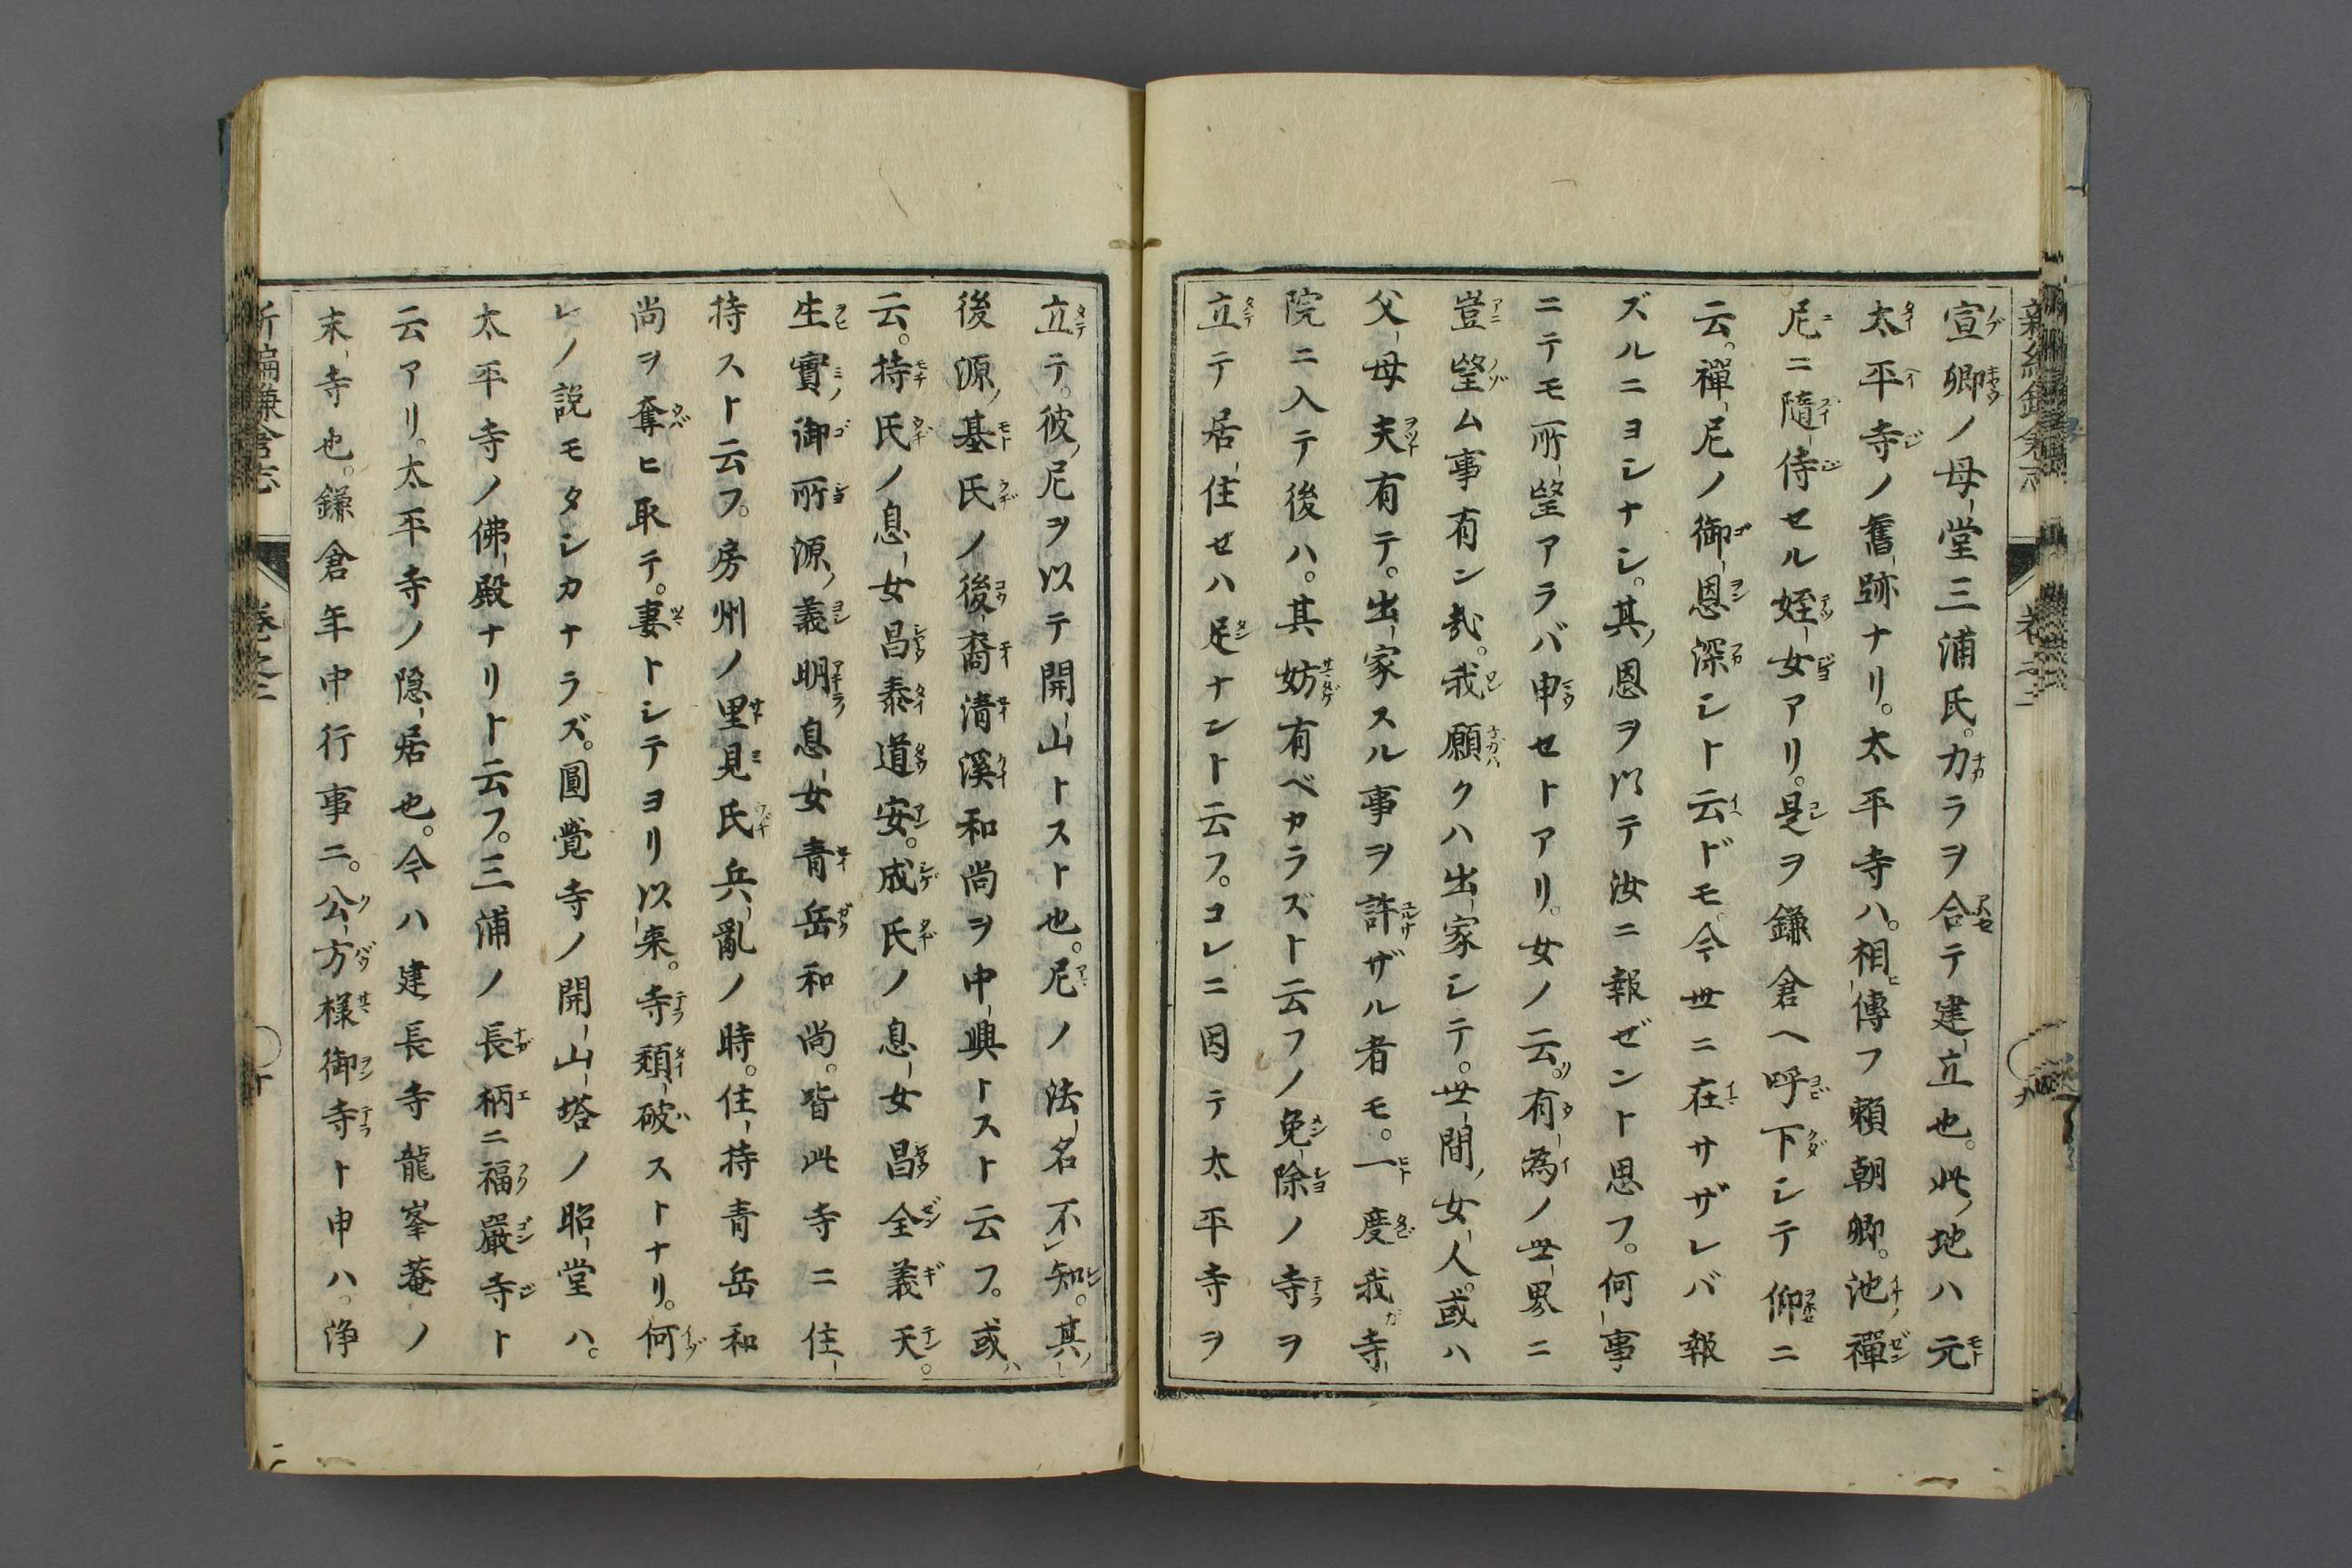 宣卿ノ母堂三浦氏。力ラヲ合テ建立也。此ノ地ハ元
太平寺ノ舊跡ナリ。太平寺ハ。相傳フ賴朝卿。池禪
尼ニ隨侍セル姪女アリ。是ヲ鎌倉ヘ呼下シテ仰ニ
云。禪尼ノ御恩深シト云ドモ。今世ニ在サザレバ報
ズルニヨシナシ。其ノ恩ヲ以テ汝ニ報ゼント思フ。何事
ニテモ所望アラバ申セトアリ。女ノ云。有為ノ世界ニ
豈望ム事有ン哉。我願クハ出家シテ。世間ノ女人。或ハ
父母夫有テ。出家スル事ヲ許ザル者モ。一度我寺
院ニ入テ後ハ。其妨有ベカラズト云フノ免除ノ寺ヲ
立テ居住セハ足ナント云フ。コレニ因テ太平寺ヲ
立テ。彼ノ尼ヲ以テ開山トスト也。尼ノ法名不レ知。其ノ
後源ノ基氏ノ後裔清溪和尚ヲ中興トスト云フ。或ハ
云。持氏ノ息女昌泰道安。成氏ノ息女昌全義天。
生實ノ御所源ノ義明息女青岳和尚。皆此寺ニ住
持スト云フ。房州ノ里見氏兵亂ノ時。住持青岳和
尚ヲ奪ヒ取テ。妻トシテヨリ以来。寺頽破ストナリ。何
レノ説モタシカナラズ。圓覺寺ノ開山塔ノ昭堂ハ。
太平寺ノ佛殿ナリト云フ。三浦ノ長柄ニ福嚴寺ト
云アリ。太平寺ノ隠居也。今ハ建長寺龍峯菴ノ
末寺也。鎌倉年中行事ニ。公方様御寺ト申ハ。浄
新編鎌倉志
卷之二